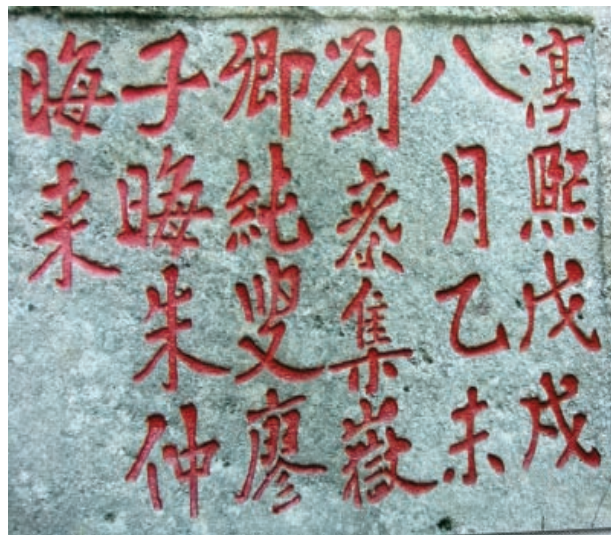 淳熙戊戌
八月乙未
劉彥集嶽
卿純叟廖
子晦朱仲
晦来